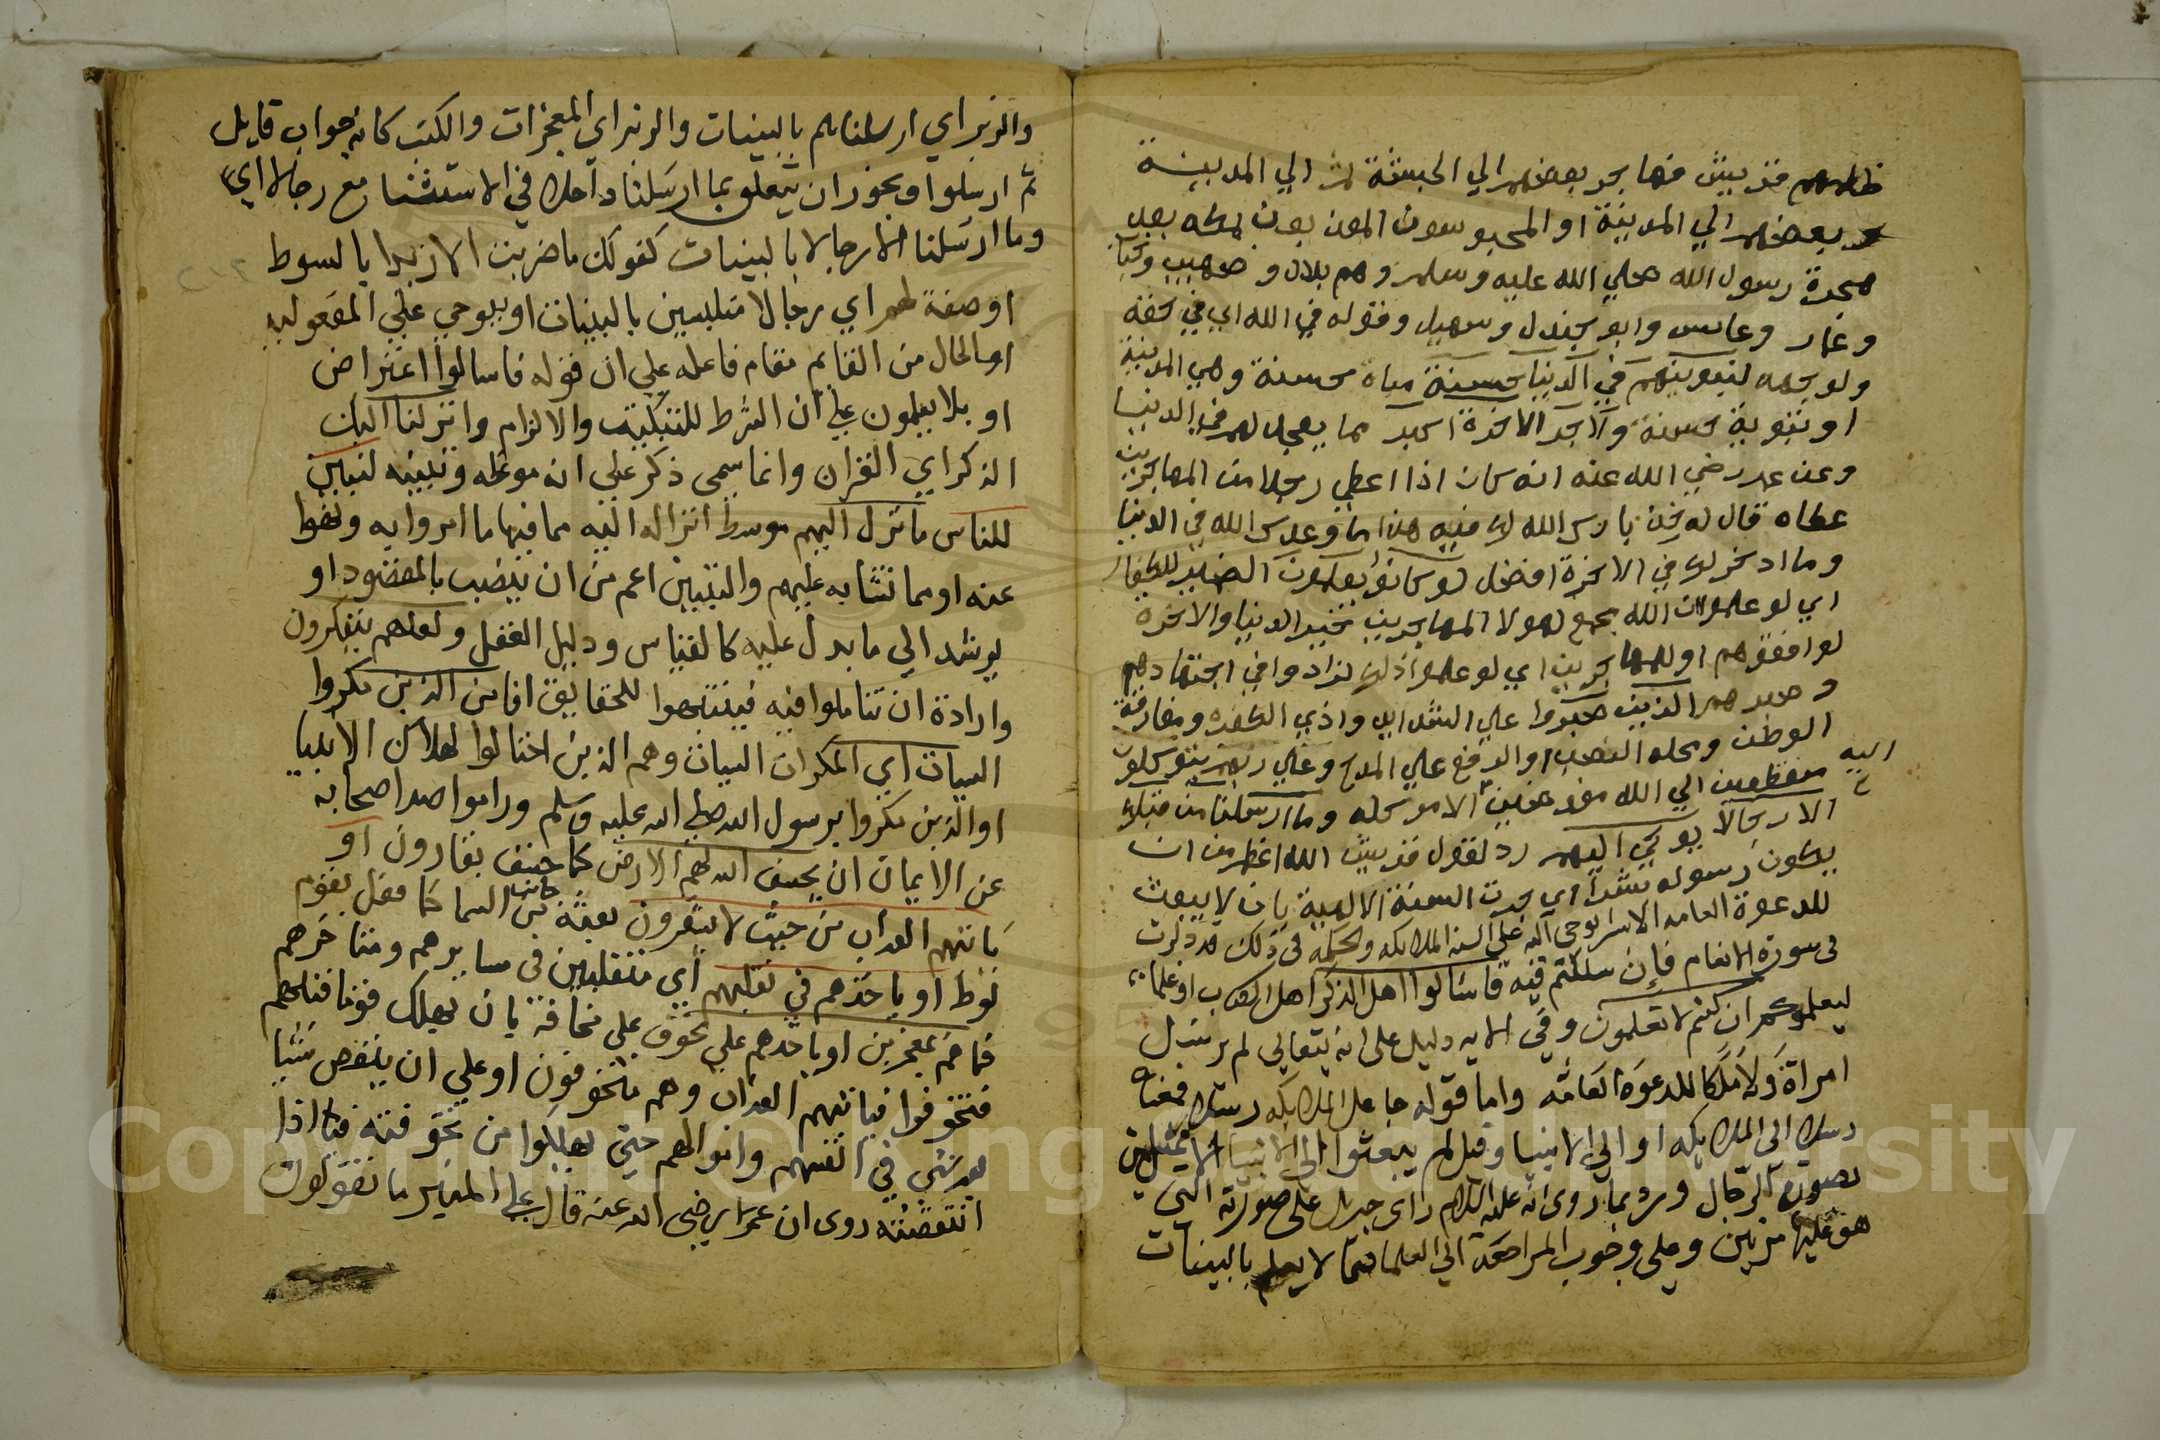 ظلمهم قريش فهاجر بعضهم الي الحبشة ثم الي المدينة
وبعضهم الي المدينة او المحبوسون المعذبون بمكه بعد
هجرة رسول الله صلي الله عليه وسلم وهم بلال و صهيب وخباب
وعمار وعابس وابو جندل وسهيل وقوله في الله اي في حقه
ولوجهه لنبوئنهم في الدنيا حسنة مباة حسنة وهي المدينة
او تبوية حسنة ولاجر الاخرة اكبر مما يعجل لهم في الدنيا
وعن عمر رضي الله عنه انه كان اذا اعطي رجلا من المهاجرين
عطاه قال له خذ بارك الله لك فيه هذا ما وعدك الله في الدنيا
وما ادخر لك في الاخرة افضل لو كانوا يعلمون الضمير للكفار
اي لو علموا ان الله يجمع لهولا المهاجرين خير الدنيا والاخرة
لوافقوهم او للمهاجرين اي لو علموا ذلك لزادوا في اجتهادهم
وصبرهم الذين صبروا علي الشدايد واذي الكفره ومفارقة
الوطن ومحله النصب او الرفع علي المدح وعلي ربهم يتوكلون
منقطعين الي الله مفوضين اليه الامر كله وما ارسلنا من قبلك
الا رجالا يوحي اليهم رد لقول قريش الله اعظم من ان
يكون رسوله بشرا اي جرت السنة الالهية بان لا يبعث
للدعوة العامه الا بشرا يوحي اليه علي السنه الملايكه والحكمة في ذلك قد ذكرت
في سورة الانعام فان شككتم فيه فاسالوا اهل الذكر اهل الكتاب او علما
ليعلموكم ان كنتم لا تعلمون وفي الايه دليل علي انه تعالي لم يرسل
امراة ولا ملكا للدعوة العامه واما قوله جاعل الملايكه رسلا فمعناه
رسلا الي الملايكه او الي الانبيا وقيل لم يبعثوا الي الانبيا الا متمثلين
بصورة الرجال ورد بما روي انه عليه السلام راي جبريل علي صورته التي
هو عليها مرتين وعلي وجوب المراجعة الي العلما فيما لا يعلم بالبينات
والزبر اي ارسلناهم بالبينات والزبر اي المعجزات والكتب كانه جواب قايل
ثم ارسلوا ويجوز ان يتعلق بما ارسلنا داخلا في الاستثنا مع رجالا اي
وما ارسلنا الا رجالا بالبينات كقولك ما ضربت الا زيدا بالسوط
او صفة لهم اي رجالا متلبسين بالبينات او بيوحي علي المفعوليه
او الحال من القايم مقام فاعله علي ان قوله فاسالوا اعتراض
او بلا يعلمون علي ان الشرط للتبكيت والالزام وانزلنا اليك
الذكر اي القران وانما سمي ذكر علي انه موعظه وتنبيه لتبين
للناس ما نزل اليهم موسط انزاله اليه مما فيها ما امروا به ونهوا
عنه او مما تشابه عليهم والتبيين اعم من ان ينصب بالمقصود او
يرشد الي ما يدل عليه كالقياس ودليل العقل ولعلهم يتفكرون
وارادة ان يتاملوا فيه فينتبهوا للحقايق افامن الذين مكروا
السيات اي المكرات السيات وهم الذين احتالوا لهلاك الانبيا
او الذين مكروا برسول الله صلي الله عليه وسلم وراموا صد اصحابه
عن الايمان ان يخسف الله بهم الارض كما خسف بقارون او
ياتيهم العذاب من حيث لا يشعرون بغتة من جانب السما كما فعل بقوم
لوط او ياخذهم في تقلبهم اي متقلبين في مسايرهم ومتاجرهم
فما هم بمعجزين او ياخذهم علي تخوف علي مخافة بان يهلك قوما قبلهم
فيتخوفوا فياتيهم العذاب وهم متخوفون او علي ان ينقص شيا
بعد شي في انفسهم واموالهم حتي يهلكوا من تخوفته اذا
انتقصته روي ان عمر رضي الله عنه قال علي المنبر ما تقولون